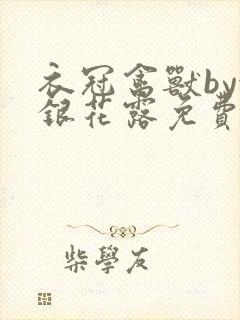 衣冠禽獸by
銀花露免費
柴學友